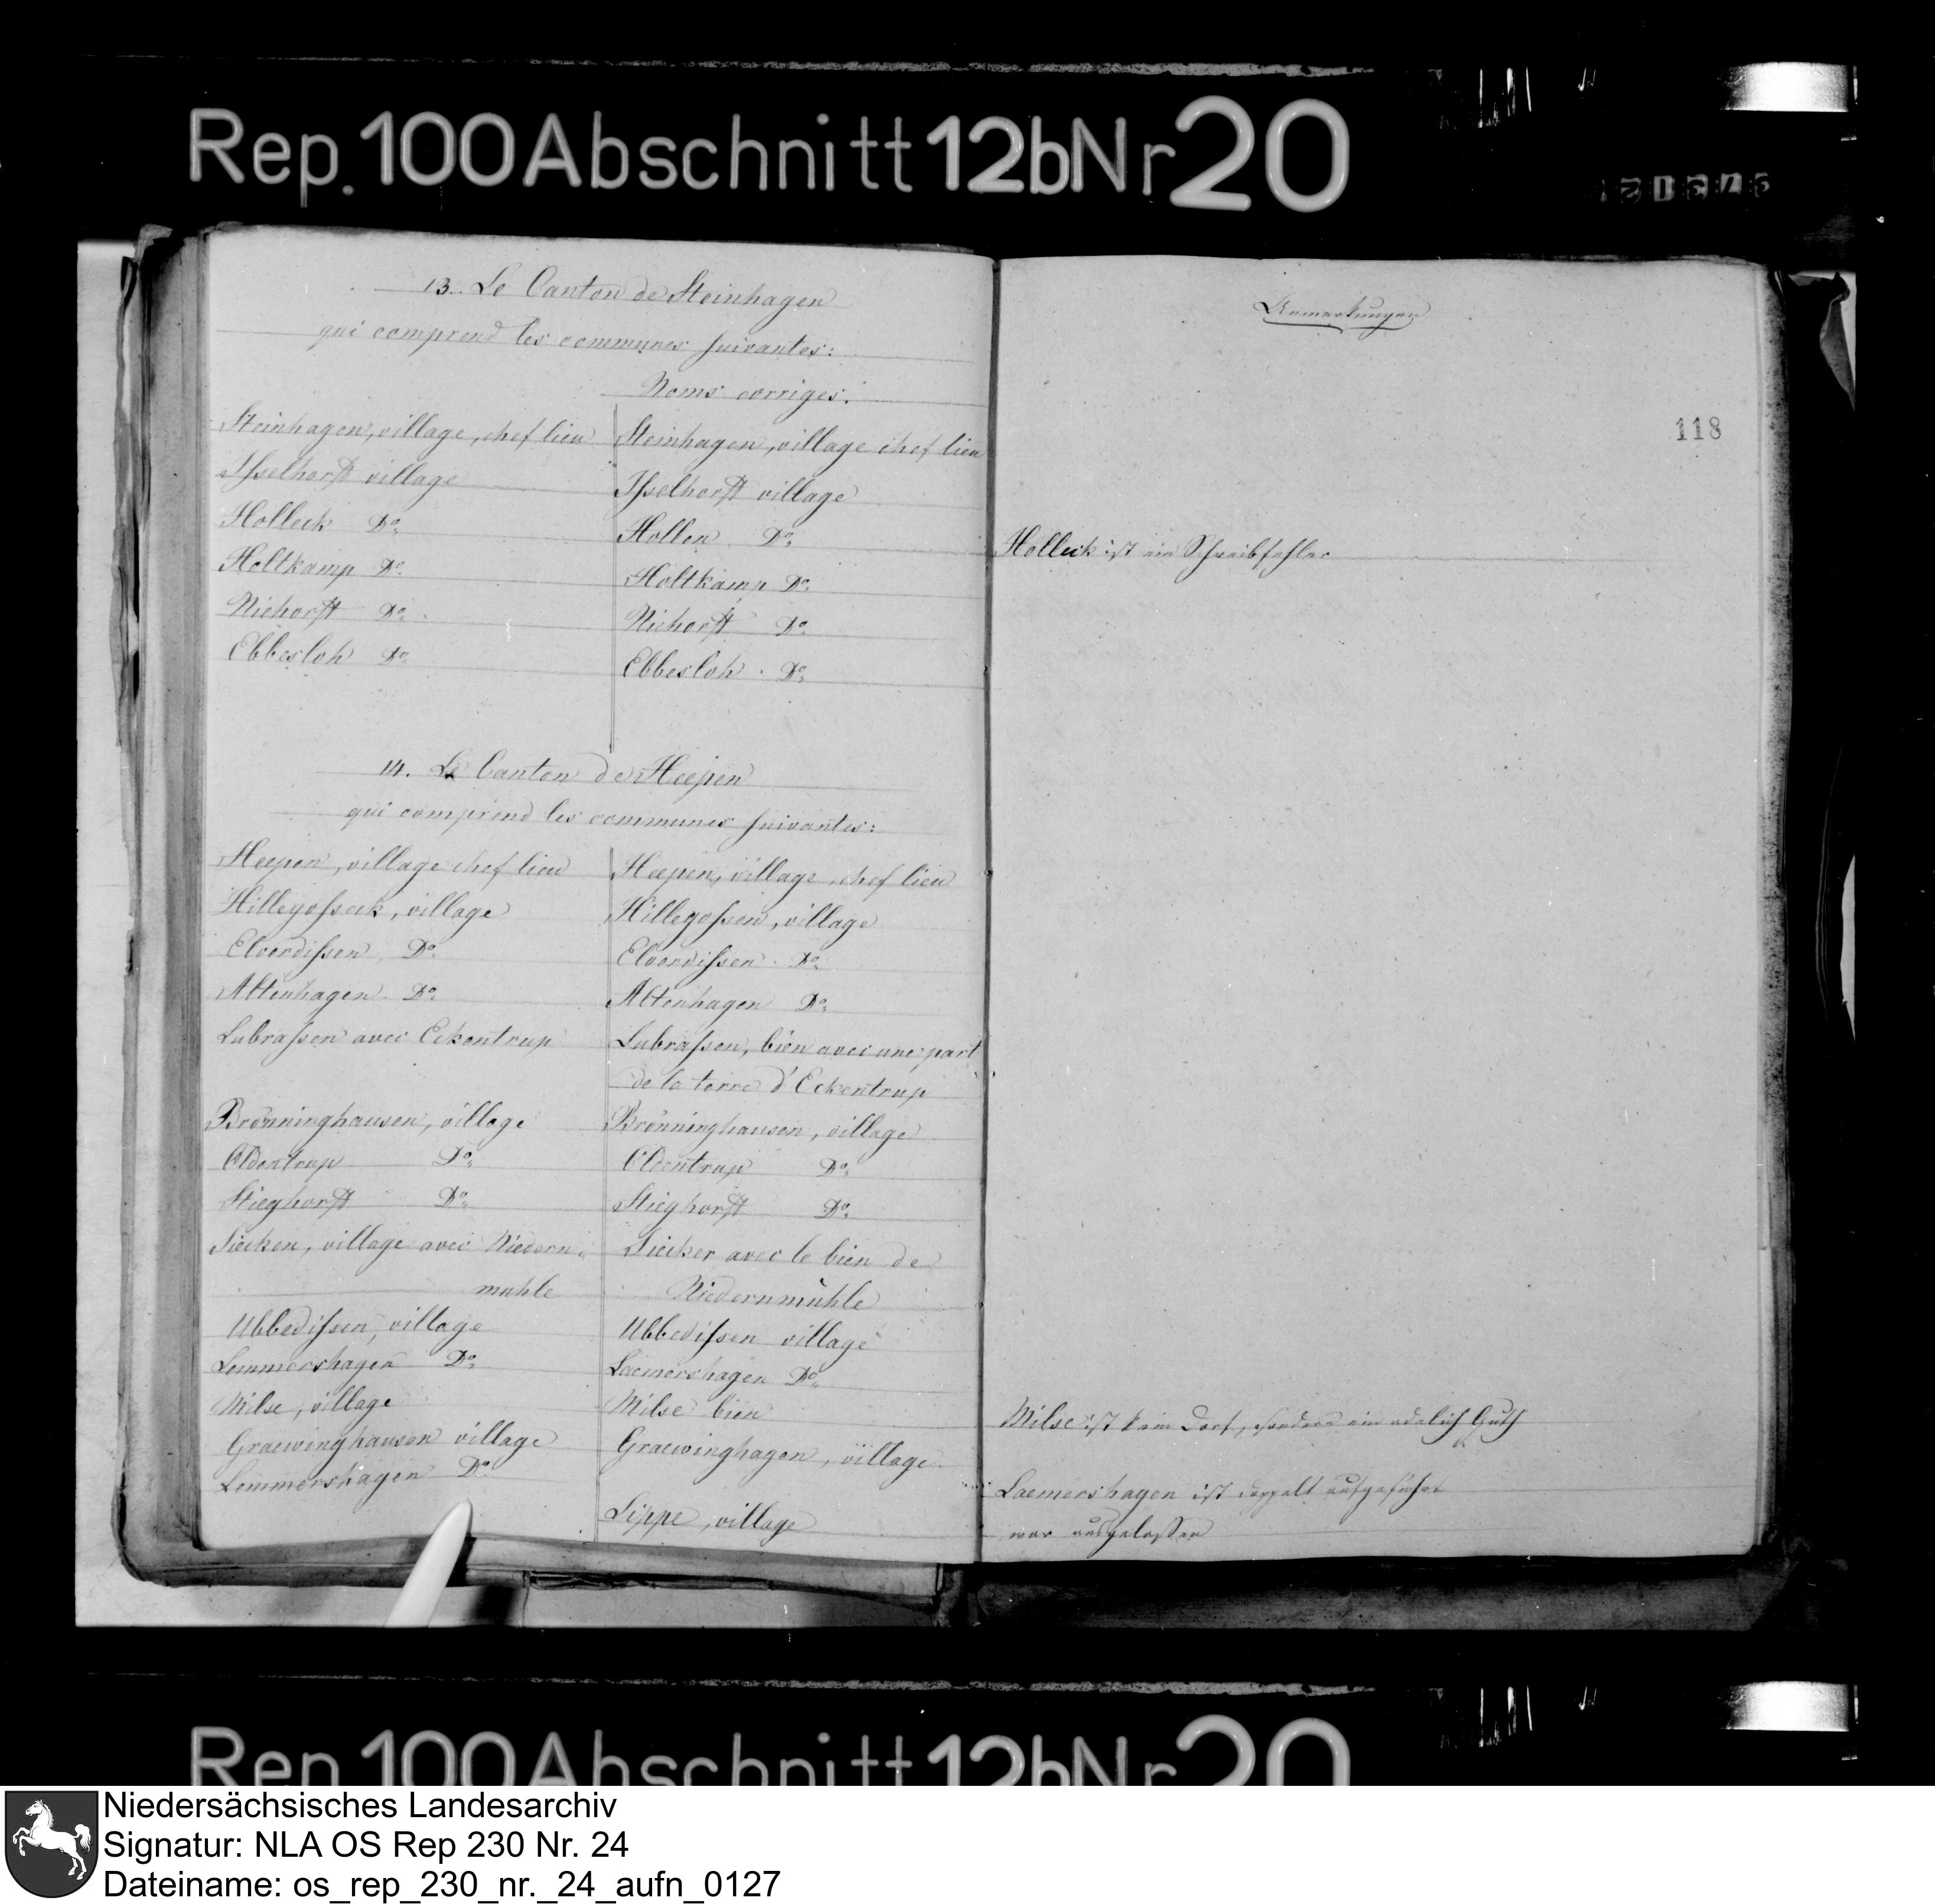 Rep. 100 Abschnitt 12b Nr 20
13. Le Canton de Steinhagen
qui comprend les communes suivantes:
Noms corriges:
Steinhagen, village, chef lieu
Steinhagen, village chef lieu
Isselhorst village
Isselhorst village
Holleck Do.
Hollen Do.
Holtkamp Do.
Holtkamp Do.
Niehorst Do.
Niehorst Do.
Ebbesloh Do.
Ebbesloh Do.
14. Le Canton de Heepen
qui comprend les communes suivantes:
Heepen, village chef lieu
Heepen, village, chef lieu
Hillegosseck, village
Hillegossen, village
Elverdissen, Do.
Elverdissen Do.
Altenhagen Do.
Altenhagen Do.
Lubrassen avec Eckentrup
Lubrassen, bien avec une part
de la terre d'Eckentrup
Brönninghausen, village
Brönninghausen, village
Oldentrup Do.
Oldentrup Do.
Stieghorst Do.
Stieghorst Do.
Siecken, village avec Niedern
muhle
Siecker avec le bien de
Niedernmühle
Ubbedissen, village
Ubbedissen village
Lemmershagen Do.
Laemershagen Do.
Milse, village
Milse bien
Graewinghausen village
Graewinghagen, village
Lemmershagen Do.
Lippe, village
Bemerkungen
118
Holleck ist ein Schreibfehler
Milse ist kein Dorf, sondern ein adelich Guth
Laemershagen ist doppelt aufgeführt
war ausgelassen
Rep. 100 Abschnitt 12b Nr 20
Niedersächsisches Landesarchiv
Signatur: NLA OS Rep 230 Nr. 24
Dateiname: os_rep_230_nr._24_aufn_0127